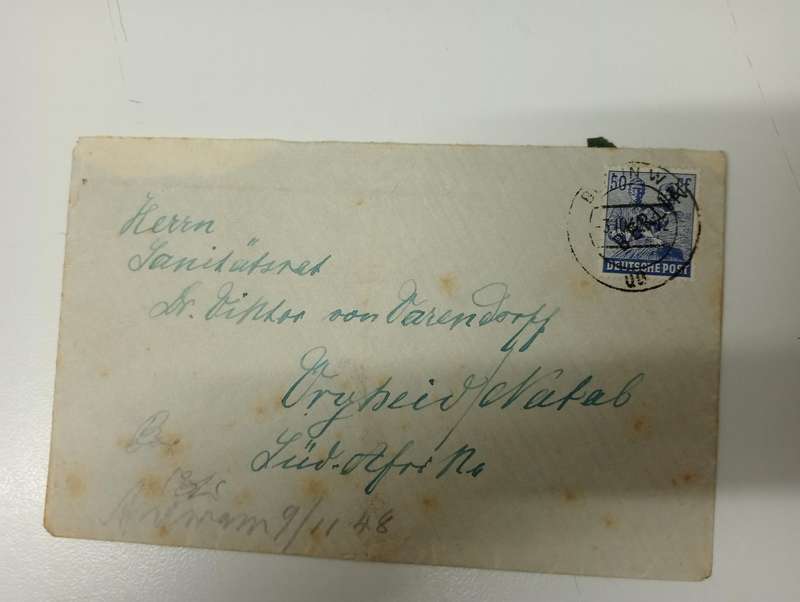 50 PF
BERLIN
DEUTSCHE POST
BERLIN W
Herrn
Sanitätsrat
Dr. Viktor von Varendorff
Vryheid/Natal
Süd-Afrika
9/11 48